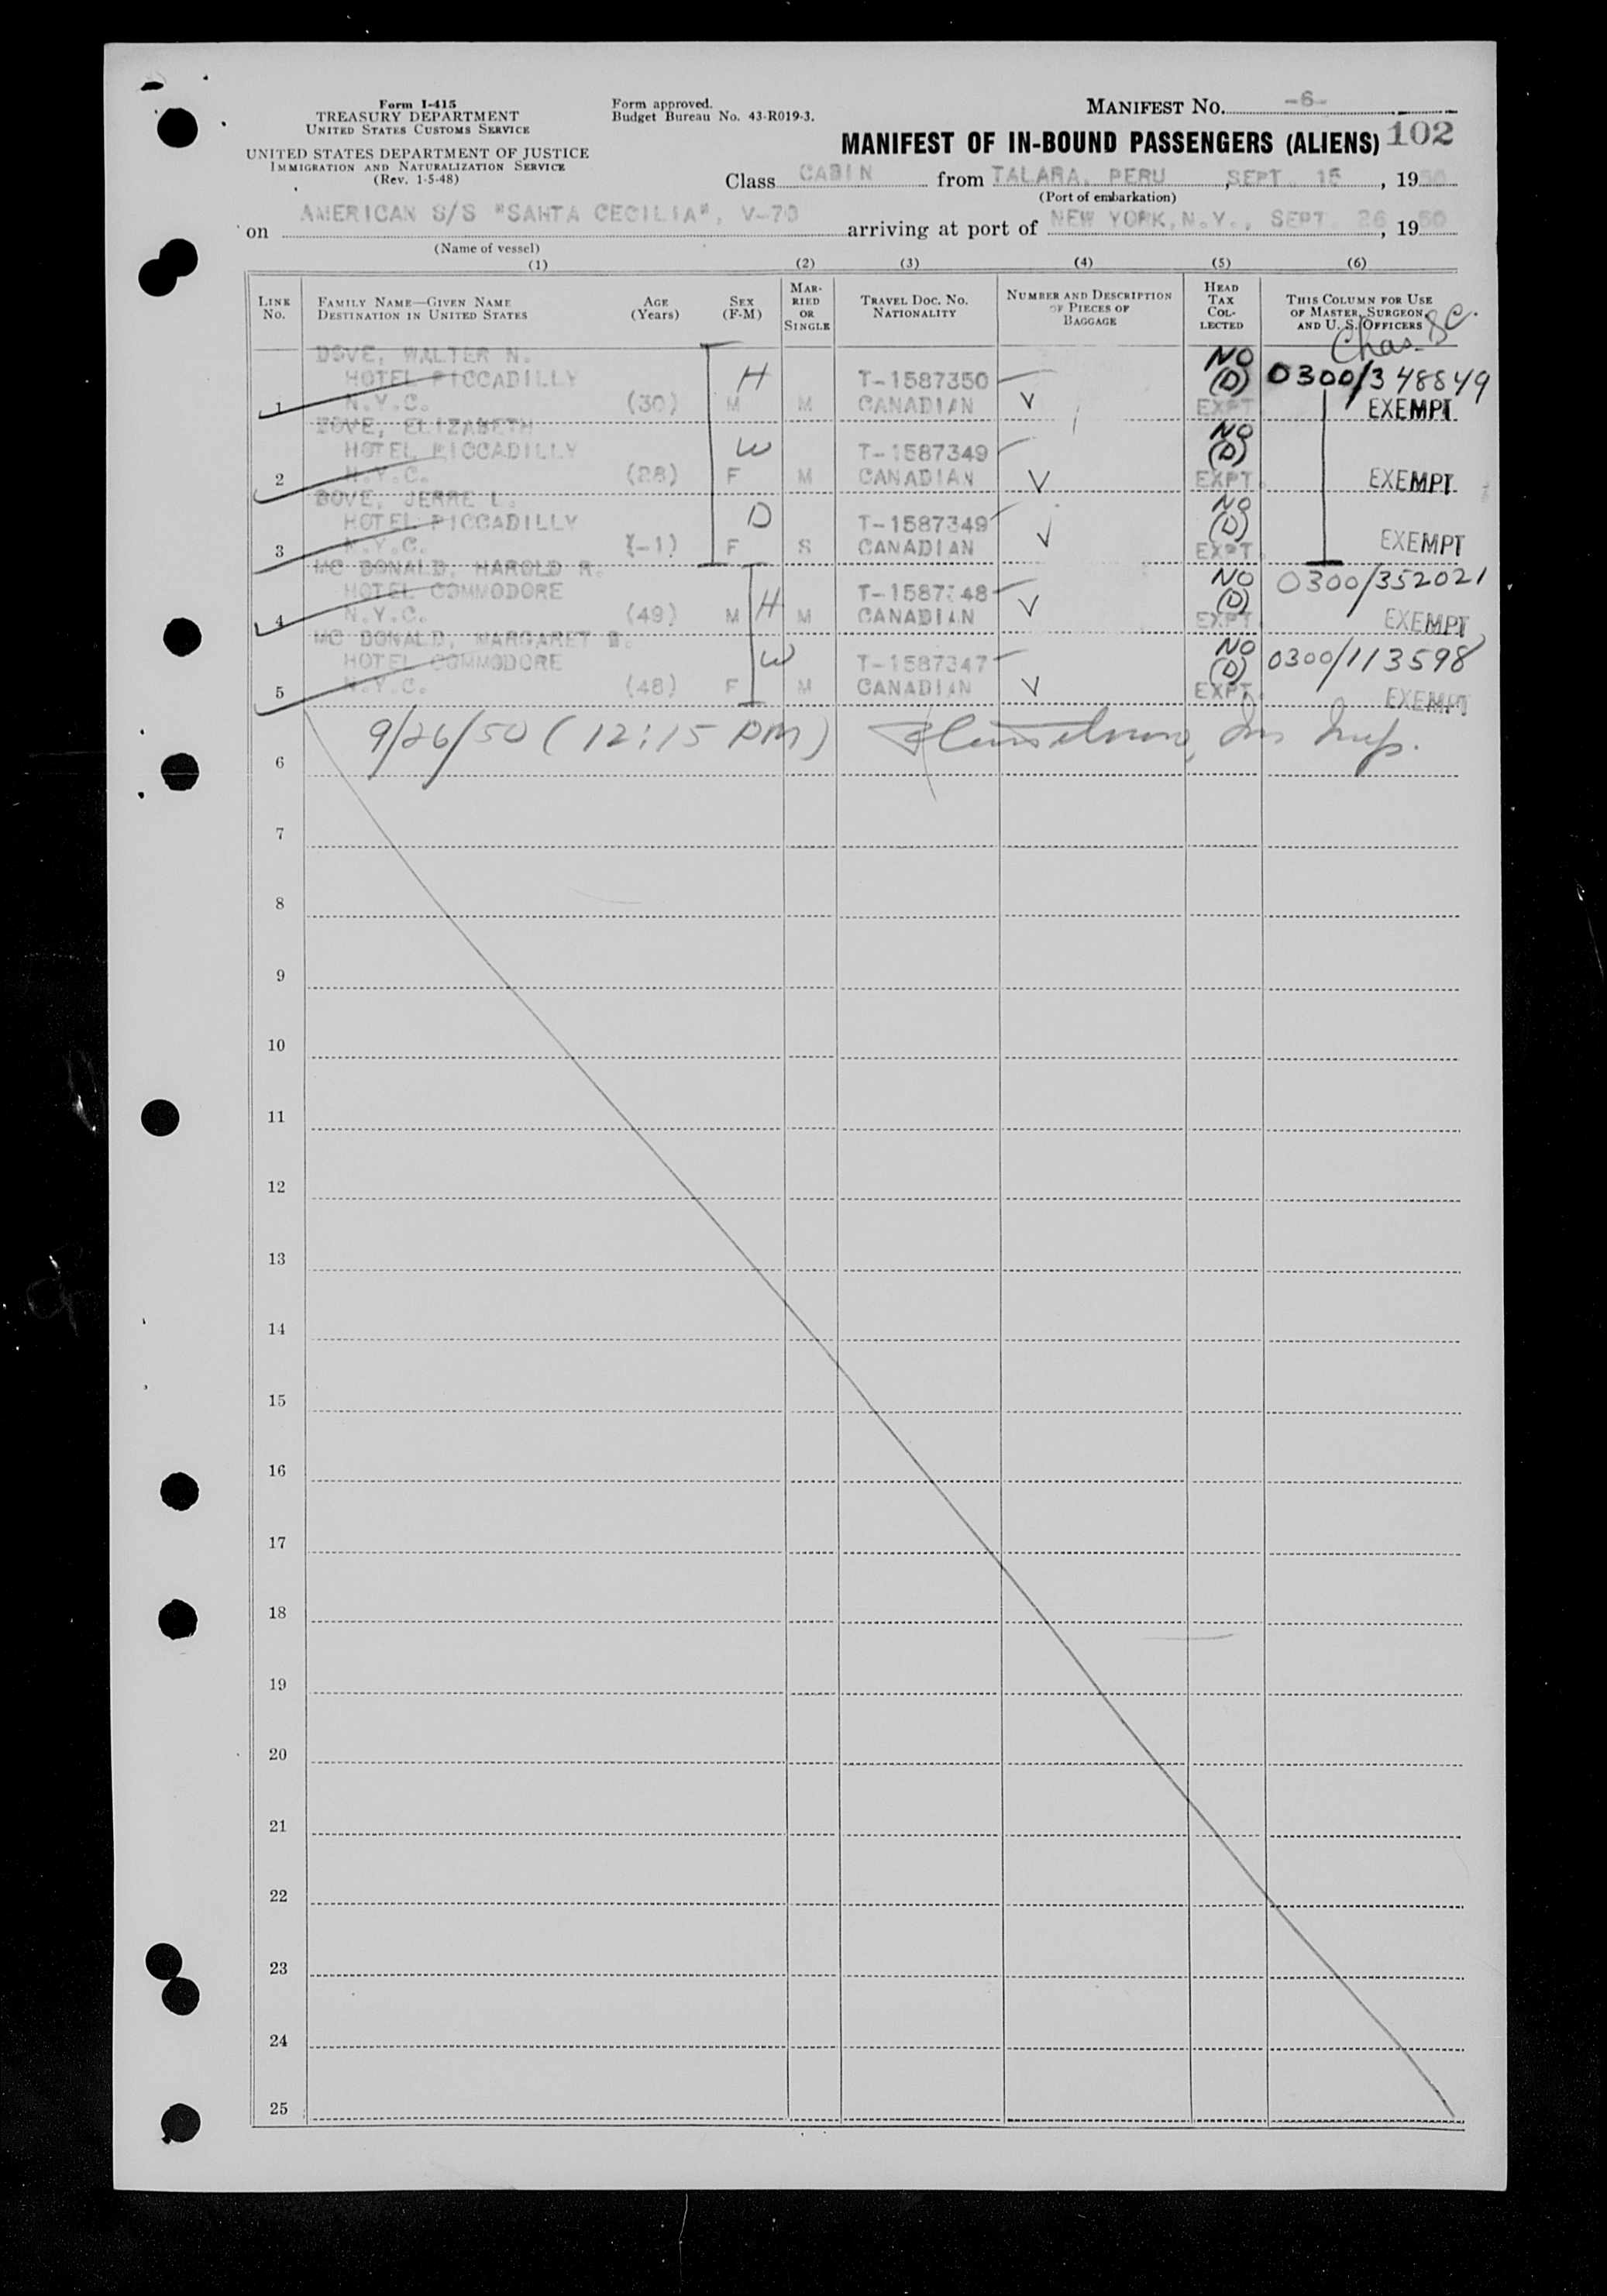 Form I-415
TREASURY DEPARTMENT
UNITED STATES CUSTOMS SERVICE
UNITED STATES DEPARTMENT OF JUSTICE
IMMIGRATION AND NATURALIZATION SERVICE
(Rev. 1-5-48)
Form approved.
Budget Bureau No. 43-R019-3.
MANIFEST No. -6-
MANIFEST OF IN-BOUND PASSENGERS (ALIENS) 102
Class CABIN from TALARA, PERU, SEPT. 15, 1950
(Port of embarkation)
on AMERICAN S/S "SANTA CECILIA", V-70 arriving at port of NEW YORK, N.Y., SEPT. 26, 1950
(Name of vessel)
(1) (2) (3) (4) (5) (6)
LINK No. FAMILY NAME—GIVEN NAME DESTINATION IN UNITED STATES AGE (Years) SEX (F-M) MARRIED OR SINGLE TRAVEL DOC. NO. NATIONALITY NUMBER AND DESCRIPTION OF PIECES OF BAGGAGE HEAD TAX COLLECTED THIS COLUMN FOR USE OF MASTER, SURGEON, AND U. S. OFFICERS
Chas. SC.
DOVE, WALTER N. NO
HOTEL PICCADILLY H T-1587350 (D) 0300/348849
1 N.Y.C. (30) M M CANADIAN V EXPT EXEMPT
DOVE, ELIZABETH NO
HOTEL PICCADILLY W T-1587349 (D)
2 N.Y.C. (28) F M CANADIAN V EXPT. EXEMPT
DOVE, JERRE L. NO
HOTEL PICCADILLY D T-1587349 (D)
3 N.Y.C. (-1) F S CANADIAN V EXPT. EXEMPT
MC DONALD, HAROLD R. NO 0300/352021
HOTEL COMMODORE H T-1587348 (D)
4 N.Y.C. (49) M M CANADIAN V EXPT. EXEMPT
MC DONALD, MARGARET B. NO 0300/113598
HOTEL COMMODORE W T-1587347 (D)
5 N.Y.C. (48) F M CANADIAN V EXPT. EXEMPT
6 9/26/50 (12:15 PM) Imm Insp.
7
8
9
10
11
12
13
14
15
16
17
18
19
20
21
22
23
24
25